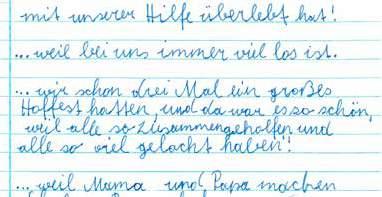 mit unserer Hilfe überlebt hat!
...weil bei uns immer viel los ist.
...wir schon drei Mal ein großes
Hoffest hatten, und da war es so schön,
weil alle so zusammengeholfen und
alle so viel gelacht haben!
...weil Mama und Papa machen